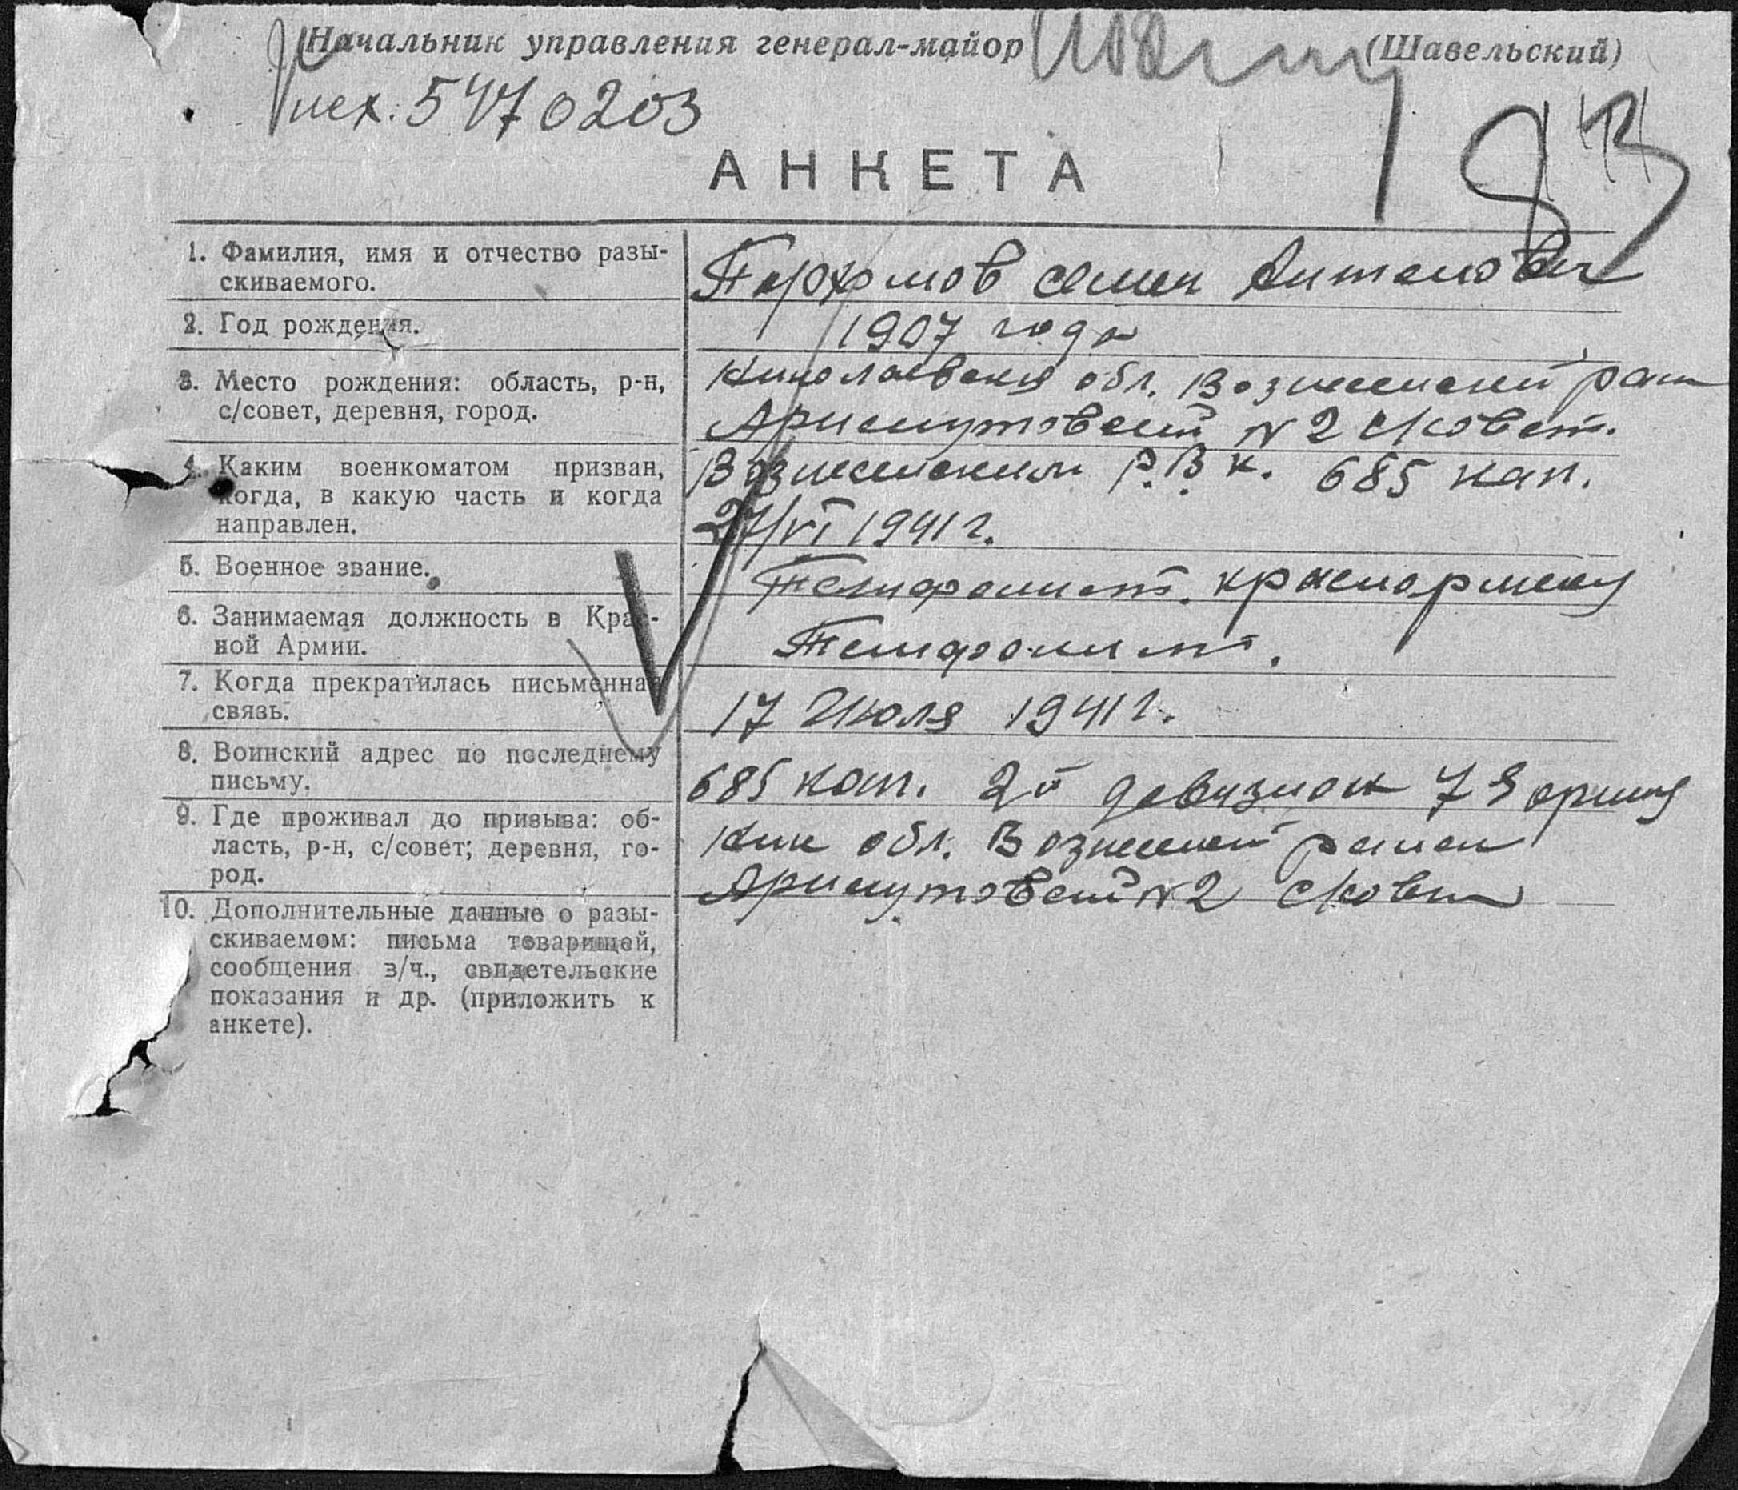 Начальник управления генерал-майор (Шавельский)
исх: 5470203
АНКЕТА
1. Фамилия, имя и отчество разы-
скиваемого.
Пархомов семен Антонович
2. Год рождения.
1907 года
3. Место рождения: область, р-н,
с/совет, деревня, город.
Николаевская обл. Вознесенский район
№2 с/совет.
4. Каким военкоматом призван,
когда, в какую часть и когда
направлен.
Вознесенским Р.В.К. 685 кап.
27/VI 1941 г.
5. Военное звание.
Телефонист. красноармеец
6. Занимаемая должность в Крас-
ной Армии.
Телефонист.
7. Когда прекратилась письменная
связь.
17 Июля 1941 г.
8. Воинский адрес по последнему
письму.
685 кап. 2й девизион
9. Где проживал до призыва: об-
ласть, р-н, с/совет; деревня, го-
род.
Ник обл. Вознесенский район
№2 с/совет
10. Дополнительные данные о разы-
скиваемом: письма товарищей,
сообщения з/ч., свидетельские
показания и др. (приложить к
анкете).